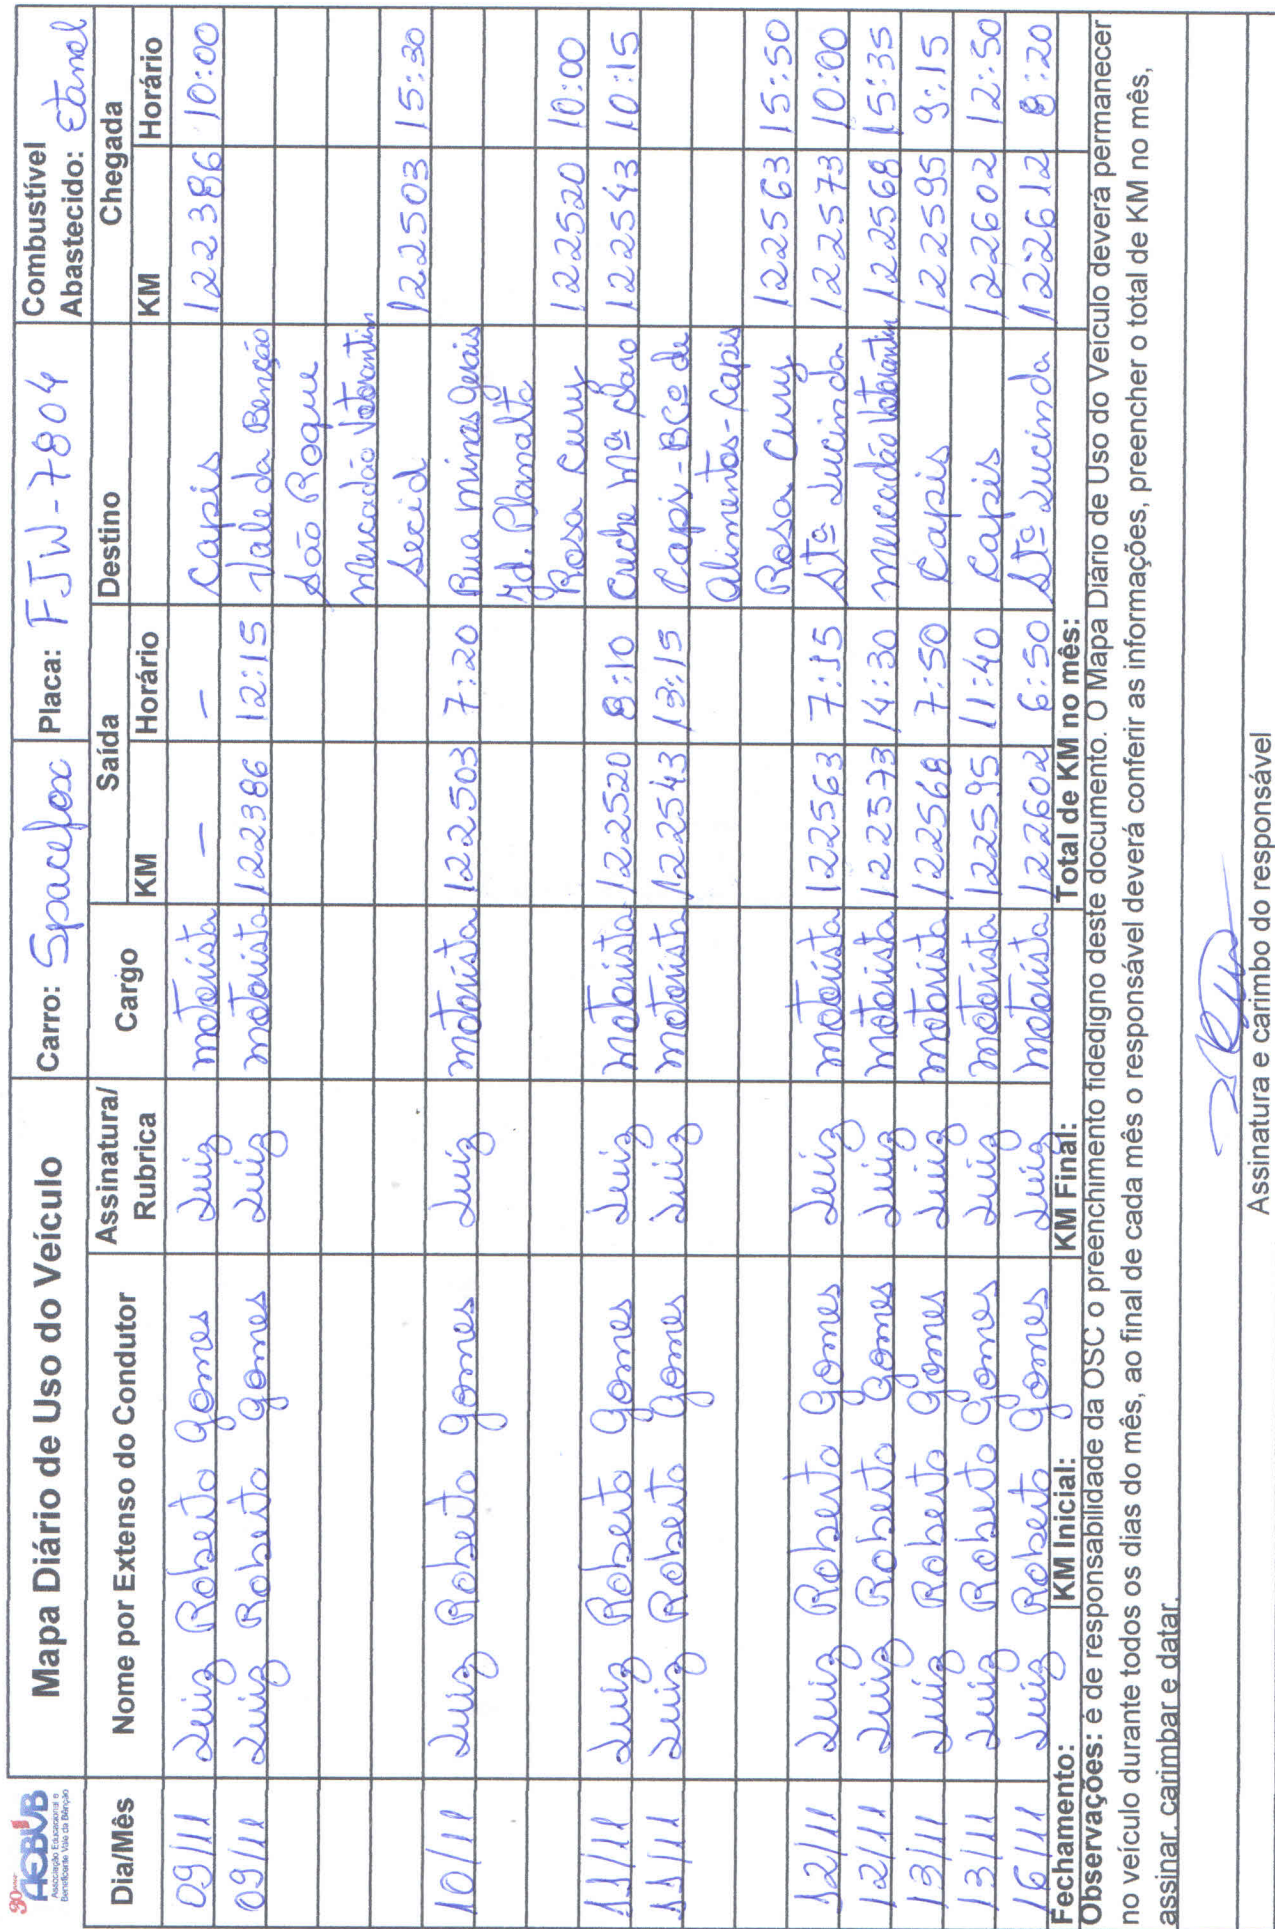 90 anos
AEBVB
Associação Educacional e
Beneficente Vale da Bênção
Mapa Diário de Uso do Veículo
Carro: Spacefox
Placa: FJW-7804
Combustível
Abastecido: Etanol
Dia/Mês
Nome por Extenso do Condutor
Assinatura/
Rubrica
Cargo
Saída
Destino
Chegada
KM Horário
KM Horário
09/11 Luiz Roberto Gomes Luiz motorista — — Capis 122386 10:00
09/11 Luiz Roberto Gomes Luiz motorista 122386 12:15 Vale da Benção
São Roque
Mercadão Votorantim
Secid 122503 15:30
10/11 Luiz Roberto Gomes Luiz motorista 122503 7:20 Rua Minas Gerais
Jd. Planalto
Rosa Cury 122520 10:00
11/11 Luiz Roberto Gomes Luiz motorista 122520 8:10 Creche Mª Claro 122543 10:15
11/11 Luiz Roberto Gomes Luiz motorista 122543 13:15 Capis-BCº de
Alimentos-Capis
Rosa Cury 122563 15:50
12/11 Luiz Roberto Gomes Luiz motorista 122563 7:15 Stª Lucinda 122573 10:00
12/11 Luiz Roberto Gomes Luiz motorista 122573 14:30 Mercadão Votorantim 122568 15:35
13/11 Luiz Roberto Gomes Luiz motorista 122568 7:50 Capis 122595 9:15
13/11 Luiz Roberto Gomes Luiz motorista 122595 11:40 Capis 122602 12:50
16/11 Luiz Roberto Gomes Luiz motorista 122602 6:50 Stª Lucinda 122612 8:20
Fechamento: KM Inicial: KM Final: Total de KM no mês:
Observações: é de responsabilidade da OSC o preenchimento fidedigno deste documento. O Mapa Diário de Uso do Veículo deverá permanecer
no veículo durante todos os dias do mês, ao final de cada mês o responsável deverá conferir as informações, preencher o total de KM no mês,
assinar, carimbar e datar.
Assinatura e carimbo do responsável